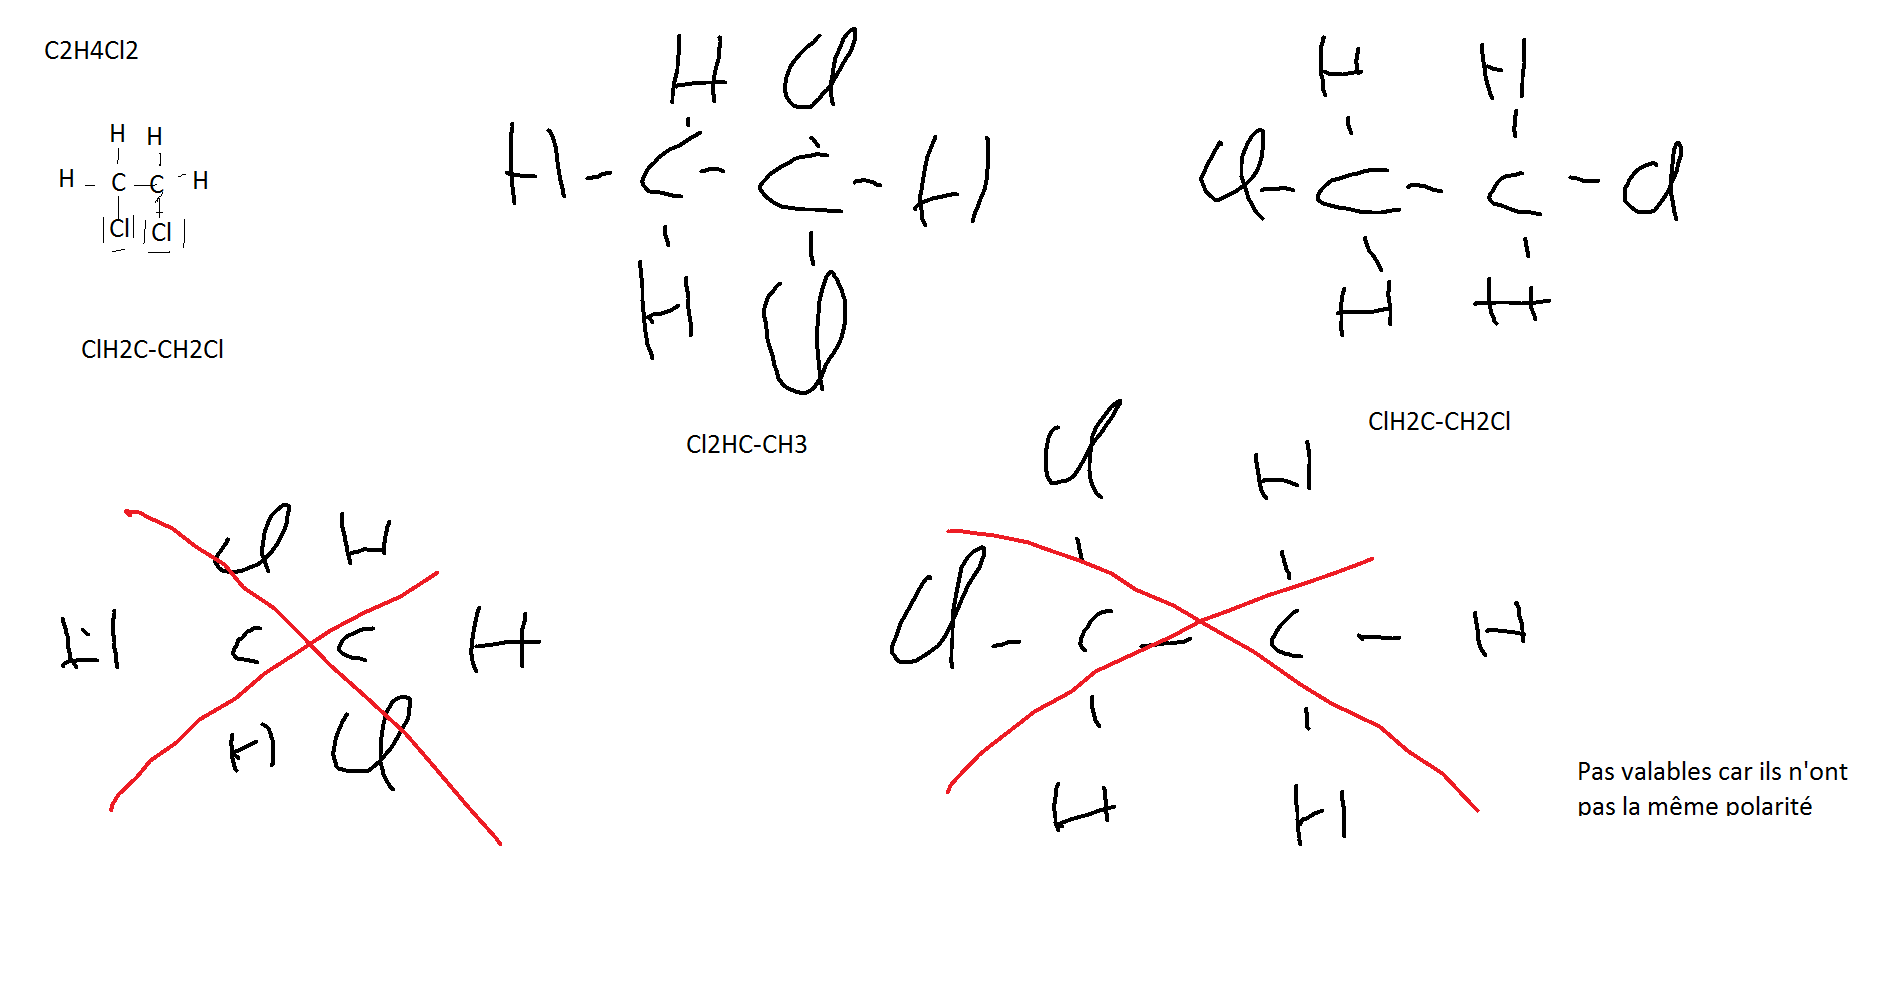 C2H4Cl2
H H
H - C - C - H
Cl Cl
ClH2C-CH2Cl
H Cl
H - C - C - H
H Cl
Cl2HC-CH3
H H
Cl - C - C - Cl
H H
ClH2C-CH2Cl
Cl H
H C C H
H Cl
Cl H
Cl - C - C - H
H H
Pas valables car ils n'ont
pas la même polarité